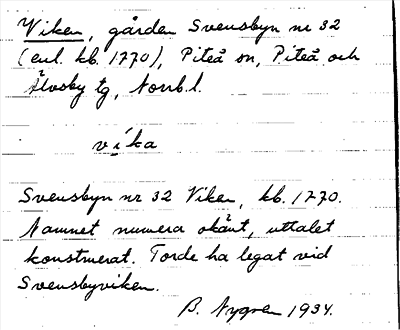 Viken, gården Svensbyn nr 32
(enl. kb. 1770), Piteå sn, Piteå och
Älvsby tg, Norrb.l.
víka
Svensbyn nr 32 Viken, kb. 1770.
Namnet numera okänt, uttalet
konstruerat. Torde ha legat vid
Svensbyviken.
B. Nygren 1934.